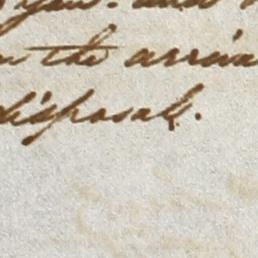 you. and
the arriva
disposal.